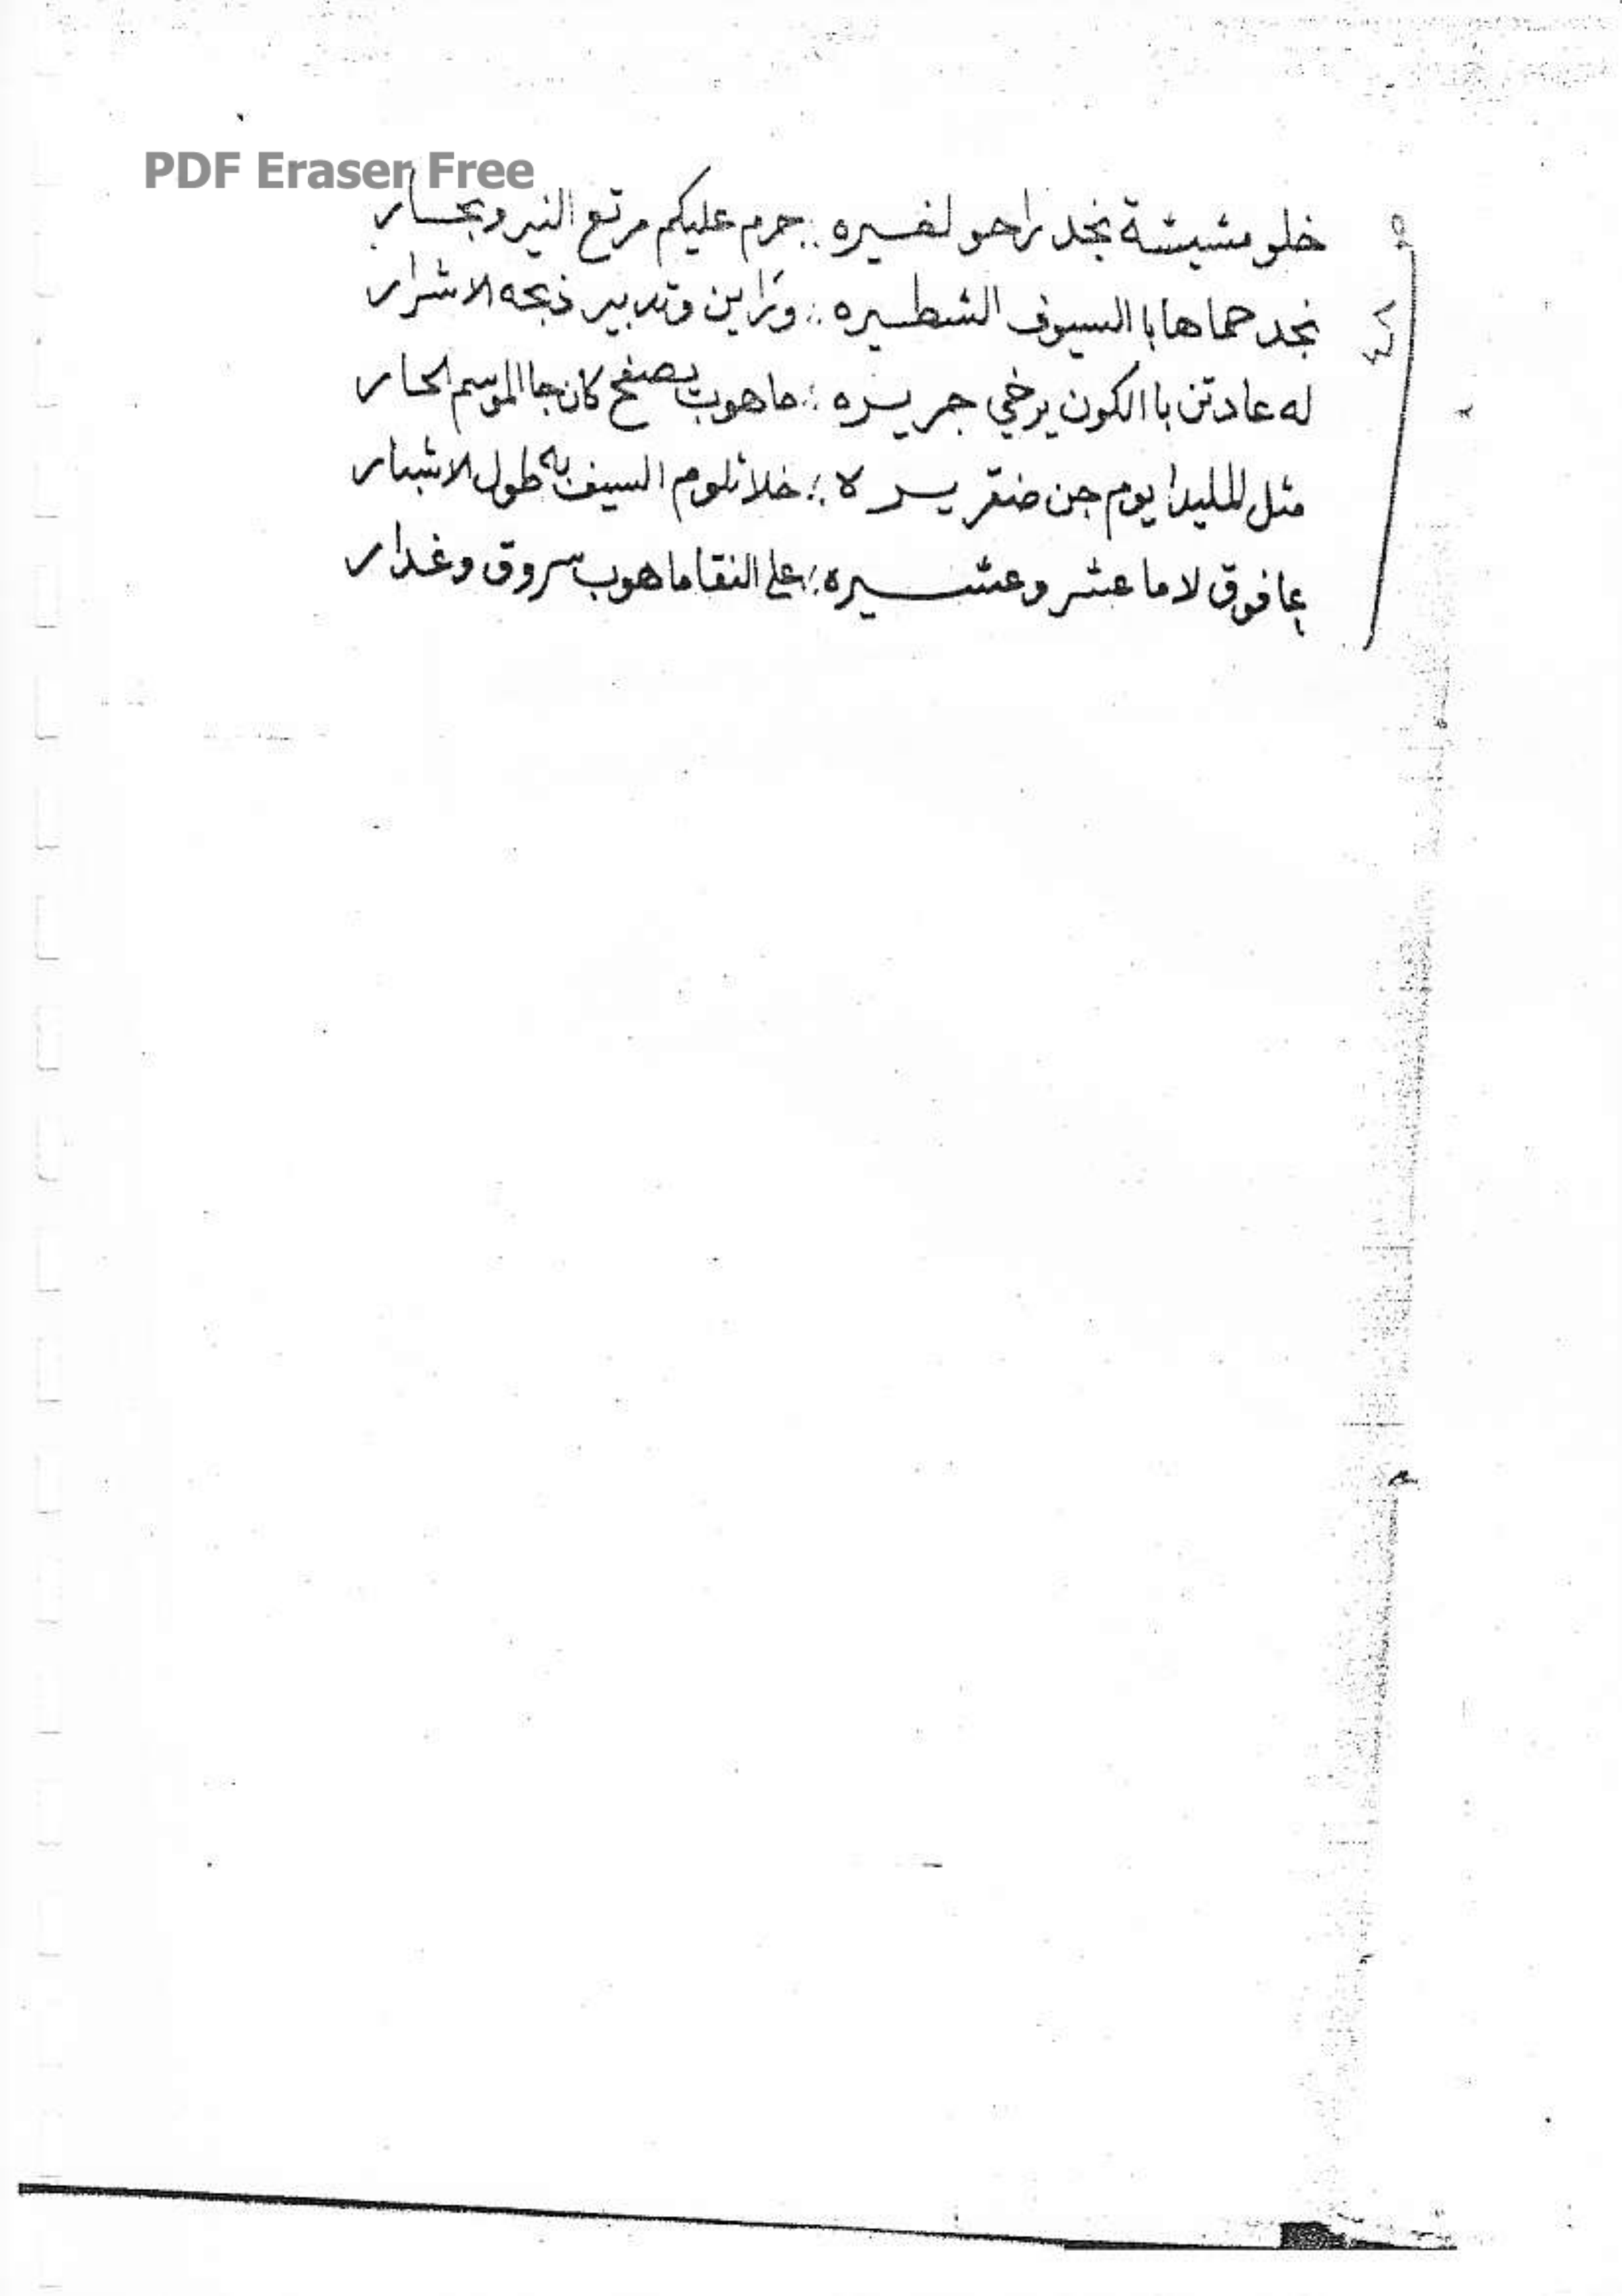 PDF Eraser Free
خلو مشيشة نجد راحو لغيره :: حرم عليكم مرتع النير وبحسار
نجد حماها با السيوف الشطيره :: وتراين وتدبير ذبحه الاشرار
له عادتن با الكون يرخي جريره :: ماهوب يصفح كان جا الموسم الحار
مثل المليدا يوم جن ضقريره :: خلا ثلوم السيف به طول الاشبار
فوق لاما عشر وعشيره :: على النقا ماهوب سروق وغدار